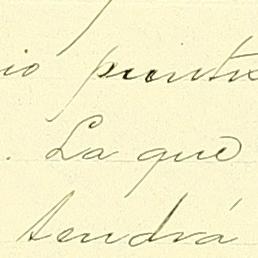 io puntu
. La que
tendrá